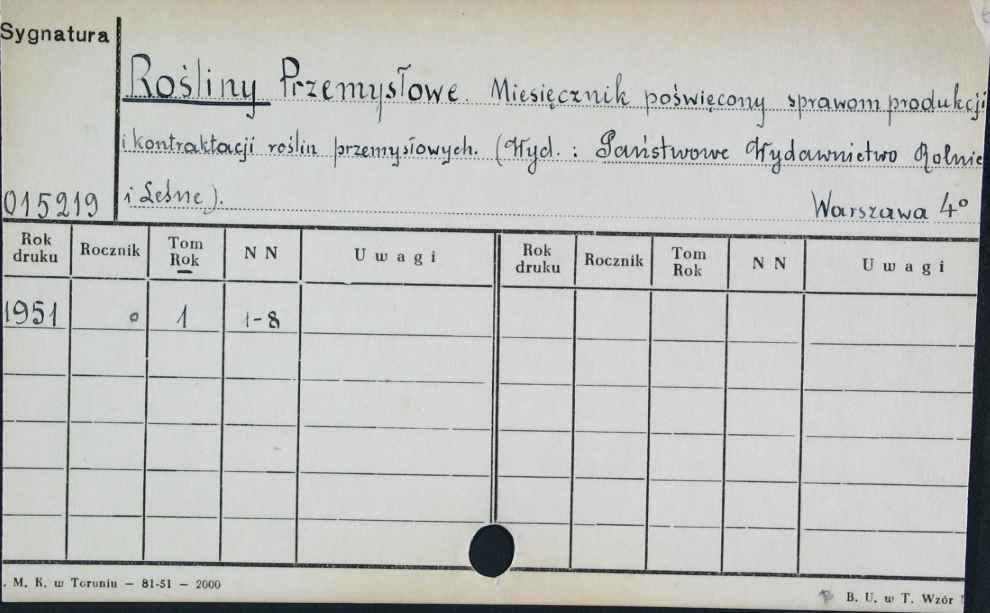 Sygnatura
Rośliny Przemysłowe. Miesięcznik poświęcony sprawom produkcji
i kontraktacji roślin przemysłowych. (Wyd.: Państwowe Wydawnictwo Rolnie
i Leśne).
015219
Warszawa 4°
Rok druku Rocznik Tom Rok N N Uwagi Rok druku Rocznik Tom Rok N N Uwagi
1951 o 1 1-8
. M. K. w Toruniu — 81-51 — 2000
B. U. w T. Wzór